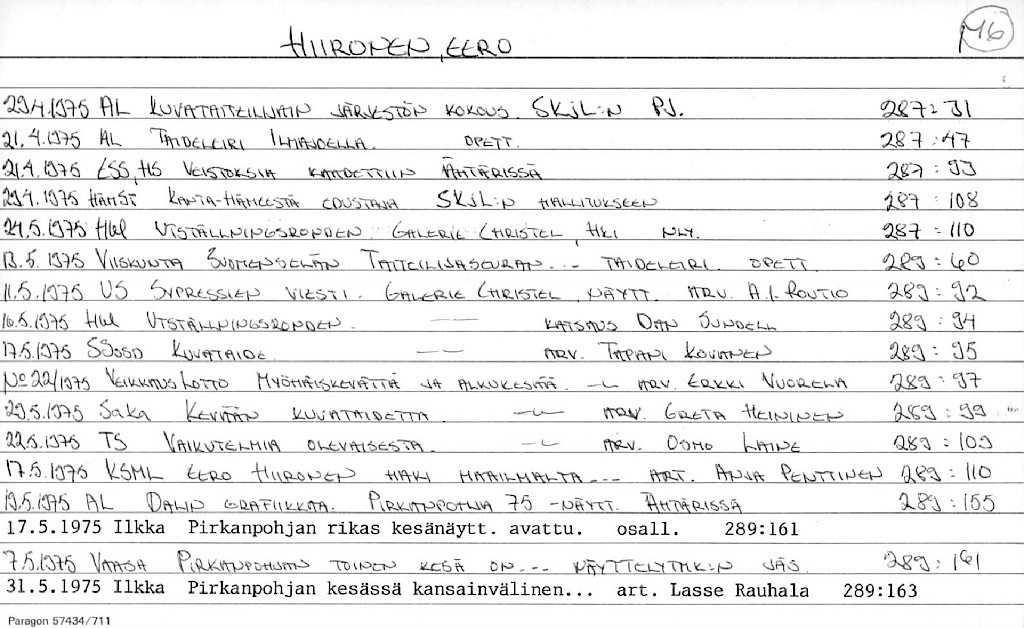 M6
HIIRONEN, EERO
29.4.1975 AL KUVATAITEILIJAIN JÄRJESTÖN KOKOUS. SKJL:N PJ. 287:31
21.4.1975 AL TAIDELEIRI ILMAJOELLA. OPETT. 287:47
21.4.1975 ESS, HS VEISTOKSIA KAADETTIIN ÄHTÄRISSÄ 287:93
29.4.1975 HÄMST KANTA-HÄMEESTÄ EDUSTAJA SKJL:N HALLITUKSEEN 287:108
24.5.1975 Hbl UTSTÄLLNINGSRONDEN. GALERIE CHRISTEL, HKI NLY. 287:110
13.5.1975 VIISKUNTA SUOMENSELÄN TAITEILIJASEURAN... TAIDELEIRI. OPETT. 289:60
11.5.1975 US SYPRESSIEN VIESTI. GALERIE CHRISTEL. NÄYTT. ARV. A.I. ROUTIO 289:92
16.5.1975 Hbl UTSTÄLLNINGSRONDEN. —"— KATSAUS DAN SUNDELL 289:94
17.5.1975 SSOSD KUVATAIDE. —"— ARV. TAPANI KOVANEN 289:95
No 22/1975 VEIKKAUSLOTTO MYÖHÄISKEVÄTTÄ JA ALKUKESÄÄ. —"— ARV. ERKKI VUORELA 289:97
29.5.1975 SaKa KEVÄÄN KUVATAIDETTA. —"— ARV. GRETA HEININEN 289:99
22.5.1975 TS VAIKUTELMIA OLEVAISESTA. —"— ARV. OSMO LAINE 289:109
17.5.1975 KSML EERO HIIRONEN HAKI MAAILMALTA... ART. ANJA PENTTINEN 289:110
19.5.1975 AL DALIN GRAFIIKKAA. PIRKANPOHJA 75 -NÄYTT. ÄHTÄRISSÄ 289:155
17.5.1975 Ilkka Pirkanpohjan rikas kesänäytt. avattu. osall. 289:161
7.5.1975 VAASA PIRKANPOHJAN TOINEN KESÄ ON... NÄYTTELYTMK:N JÄS. 289:161
31.5.1975 Ilkka Pirkanpohjan kesässä kansainvälinen... art. Lasse Rauhala 289:163
Paragon 57434/711